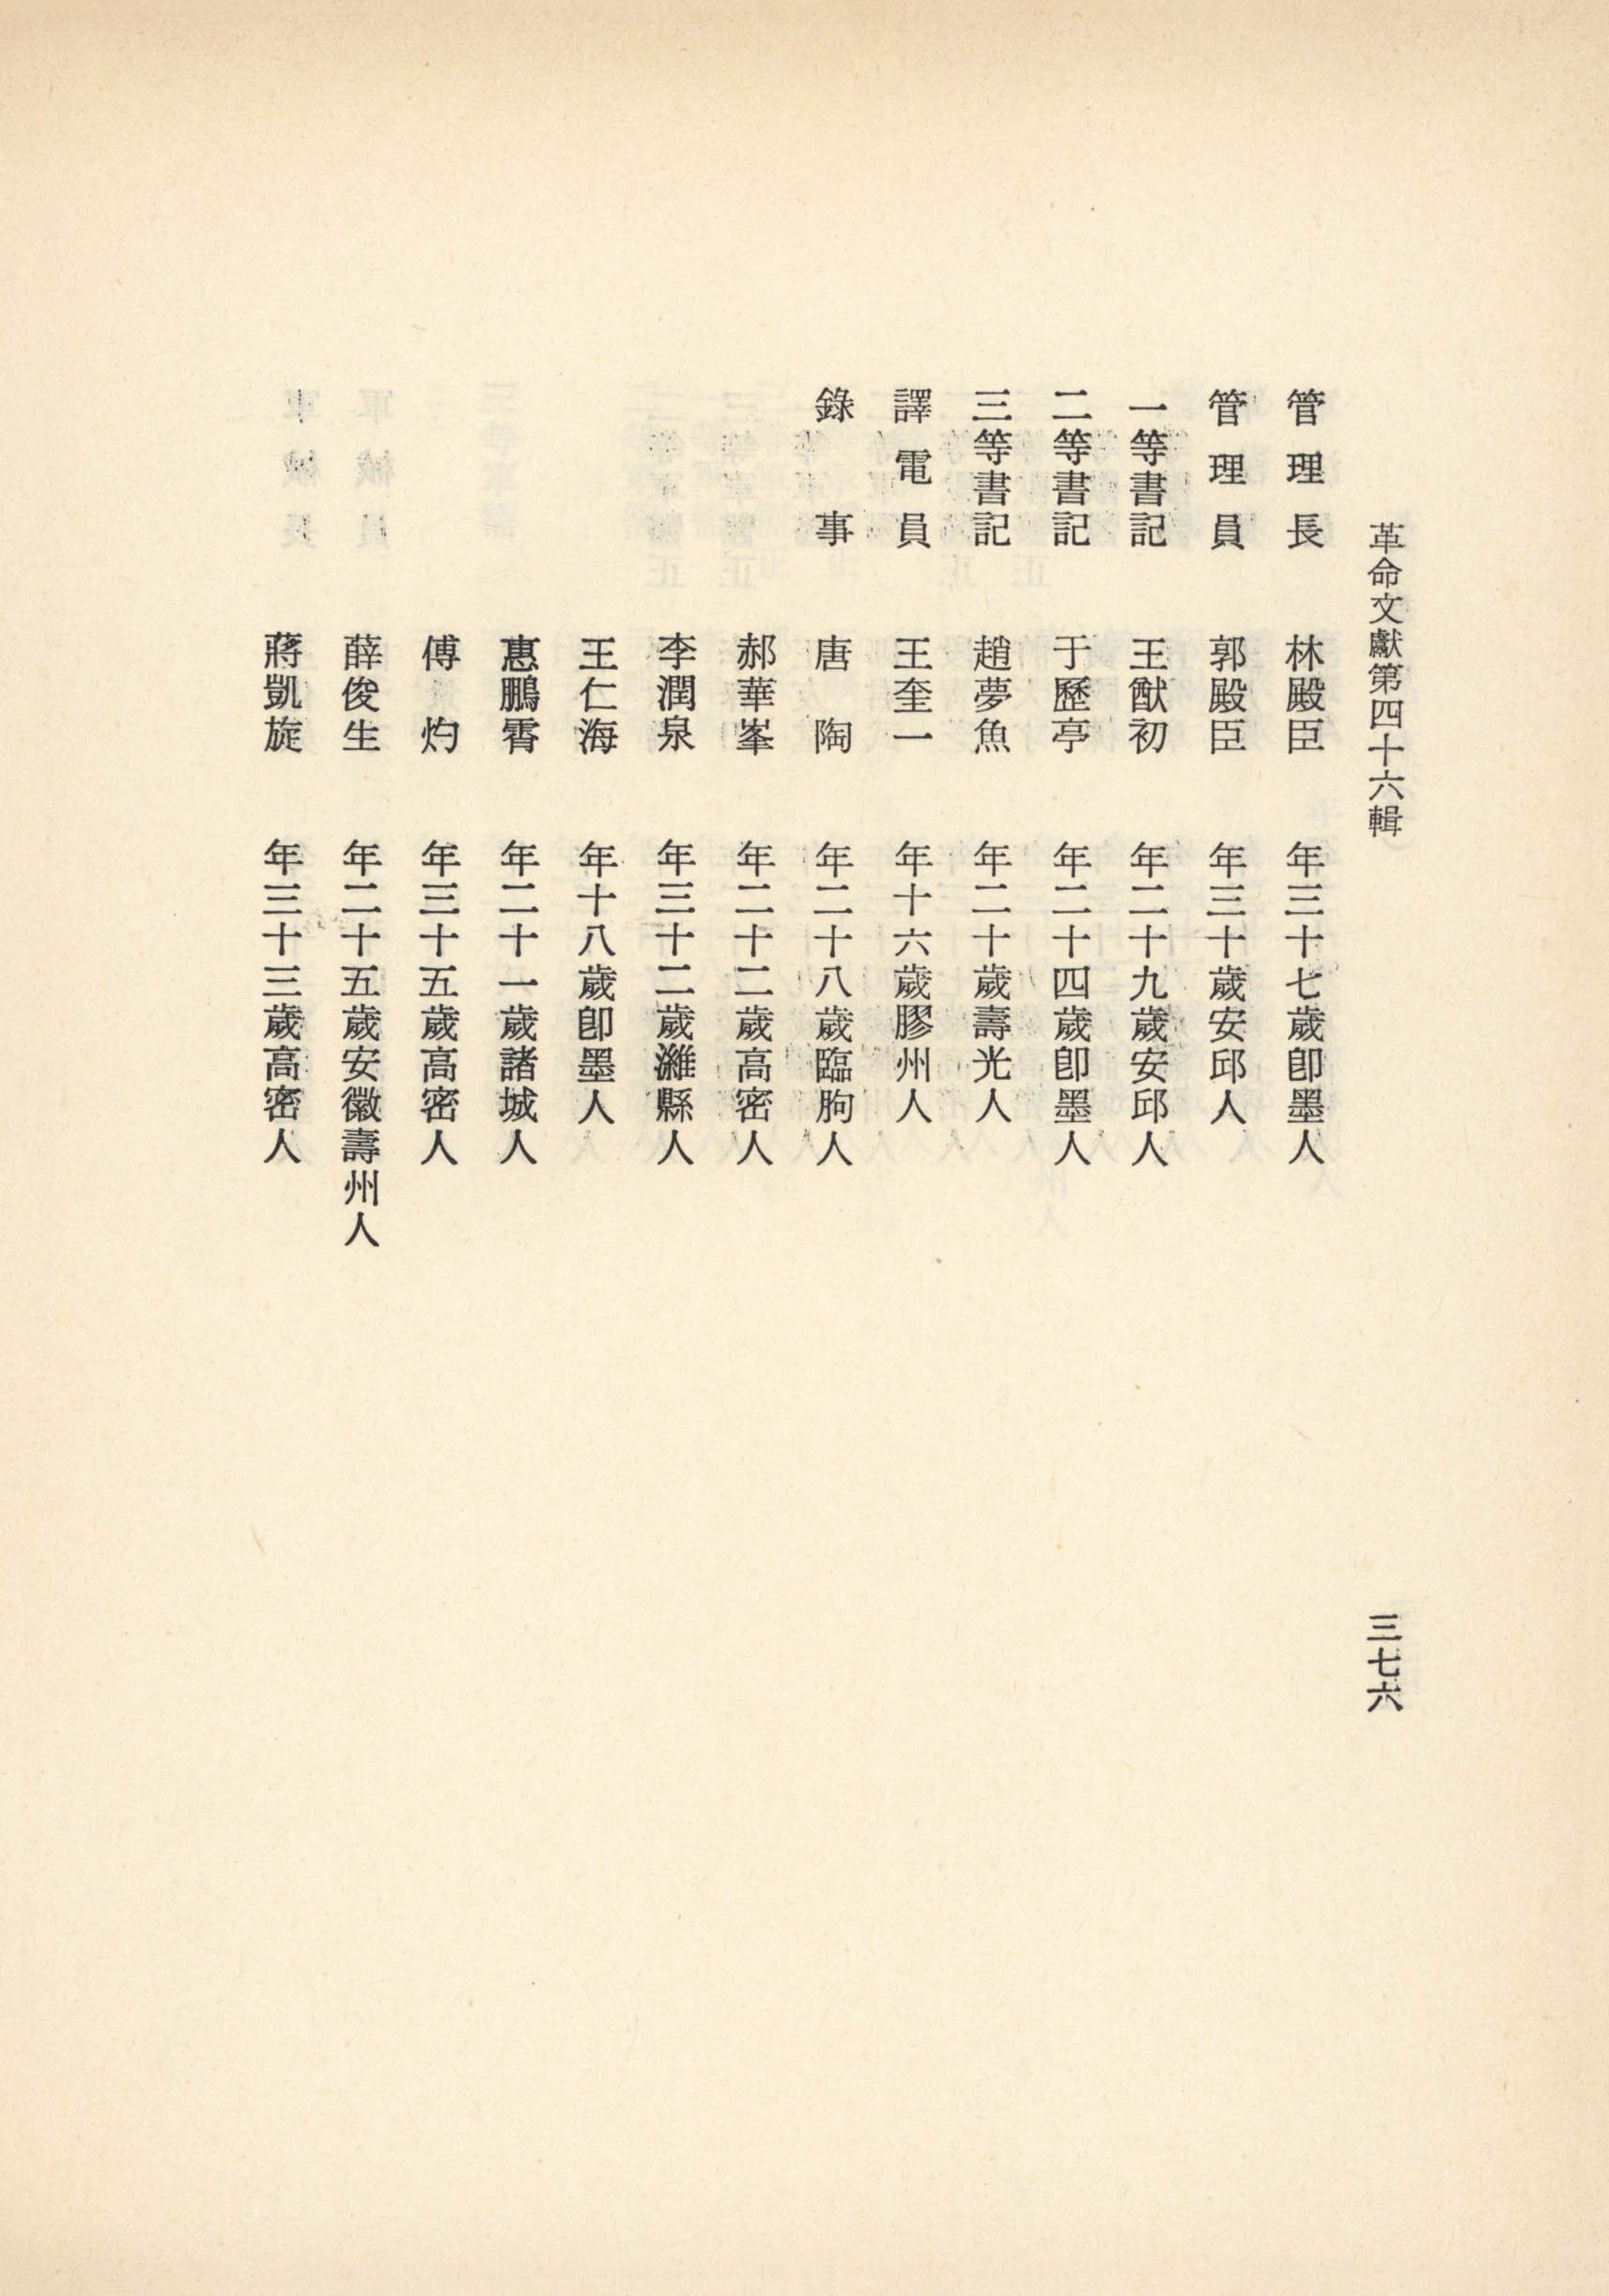 革命文獻第四十六輯 三七六
管理長 林殿臣 年三十七歲卽墨人
管理員 郭殿臣 年三十歲安邱人
一等書記 王猷初 年二十九歲安邱人
二等書記 于歷亭 年二十四歲卽墨人
三等書記 趙夢魚 年二十歲壽光人
譯電員 王奎一 年十六歲膠州人
錄事 唐陶 年二十八歲臨朐人
郝華峯 年二十二歲高密人
李潤泉 年三十二歲濰縣人
王仁海 年十八歲卽墨人
惠鵬霄 年二十一歲諸城人
傅灼 年三十五歲高密人
薛俊生 年二十五歲安徽壽州人
蔣凱旋 年三十三歲高密人